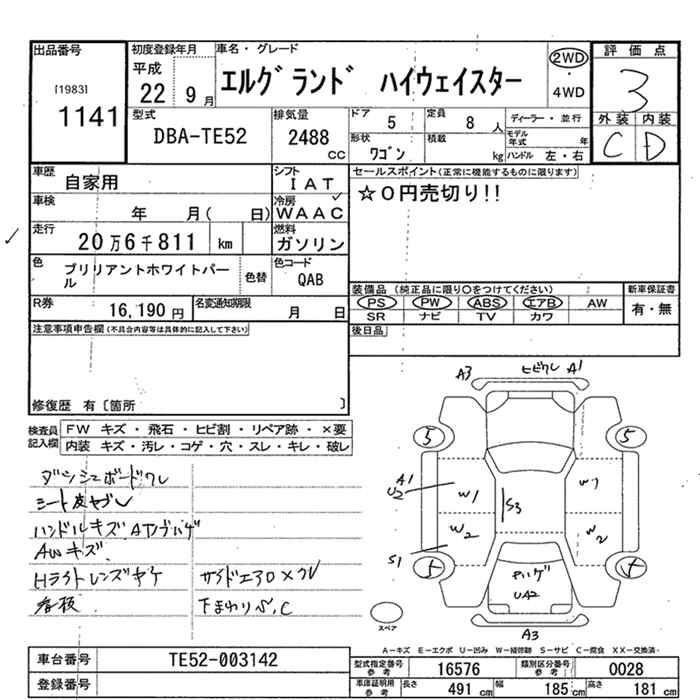 出品番号
[1983]
1141
初度登録年月
平成
22 9月
車名・グレード
エルグランド ハイウェイスター
2WD
・
4WD
評価点
3
外装 内装
C D
型式
DBA-TE52
排気量
2488
CC
ドア
5
定員
8人
形状
ワゴン
積載
kg
ディーラー・並行
モデル年式 年
ハンドル 左・右
車歴
自家用
シフト
IAT
車検
年 月( 日)
冷房
WAAC
走行
20万6千811 km
燃料
ガソリン
色
ブリリアントホワイトパール
色替
色コード
QAB
R券
16,190円
名変通知期限
月 日
セールスポイント(正常に機能するものに限ります)
☆0円売切り!!
装備品(純正品に限り○をつけてください)
PS PW ABS エアB AW
SR ナビ TV カワ
新車保証書
有・無
後日品
注意事項申告欄(不具合内容等は具体的に記入して下さい)
修復歴 有[箇所 ]
検査員記入欄
FW キズ・飛石・ヒビ割・リペア跡・×要
内装 キズ・汚レ・コゲ・穴・スレ・キレ・破レ
ダッシュボードワレ
シート皮ヤブレ
ハンドルキズ ATノブハゲ
AWキズ
Hライトレンズヤケ
サイドエアロ×ワレ
看板
下まわりS,C
A3 ヒビワレ A1
5 5
A1
U2
W1
S3
W1
W2
W2
S1
5
ヤハゲ
UA2
スペア
A3
A-キズ E-エクボ U-凹み W-補修跡 S-サビ C-腐食 XX-交換済
車台番号
TE52-003142
登録番号
型式指定番号
参考
16576
類別区分番号
参考
0028
車庫証明用
参考
長さ
491cm
幅
185cm
高さ
181cm